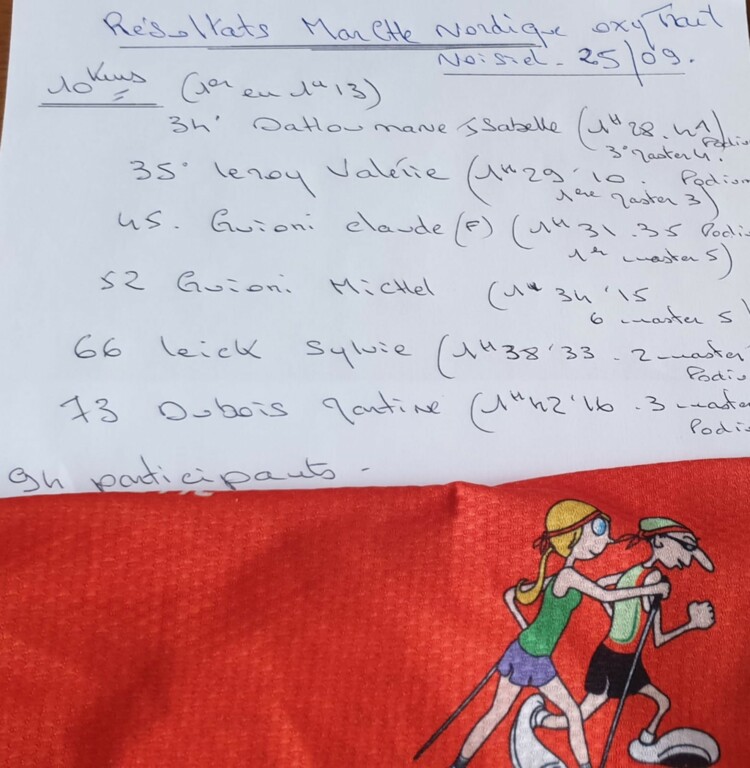 Résultats Marche Nordique oxyTrail
Noisiel - 25/09.
10 Kms (1er en 1H13)
34° Isabelle (1H28.41 Podium
3° master 4.
35° leroy Valérie (1H29'10. Podium
1ère master 3)
45. Guioni claude (F) (1H31.35 Podiu
1er master 5)
52 Guioni Michel (1H34'15
6 master 5)
66 leick Sylvie (1H38'33. 2 master
Podiu
73 Dubois Martine (1H42'16. 3 master
Podiu
94 participants -